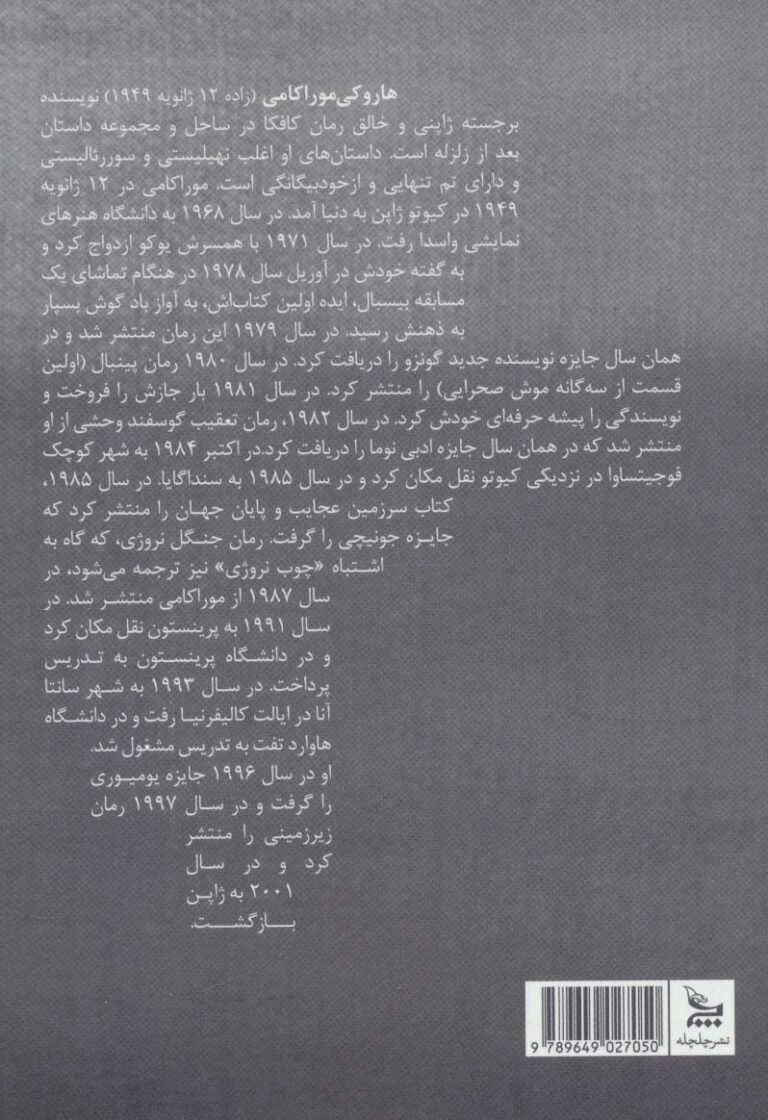 هاروکی‌موراکامی (زاده ۱۲ ژانویه ۱۹۴۹) نویسنده
برجسته ژاپنی و خالق رمان کافکا در ساحل و مجموعه داستان
بعد از زلزله است. داستان‌های او اغلب نهیلیستی و سوررئالیستی
و دارای تم تنهایی و ازخودبیگانگی است. موراکامی در ۱۲ ژانویه
۱۹۴۹ در کیوتو ژاپن به دنیا آمد. در سال ۱۹۶۸ به دانشگاه هنرهای
نمایشی واسدا رفت. در سال ۱۹۷۱ با همسرش یوکو ازدواج کرد و
به گفته خودش در آوریل سال ۱۹۷۸ در هنگام تماشای یک
مسابقه بیسبال، ایده اولین کتاب‌اش، به آواز باد گوش بسپار
به ذهنش رسید. در سال ۱۹۷۹ این رمان منتشر شد و در
همان سال جایزه نویسنده جدید گونزو را دریافت کرد. در سال ۱۹۸۰ رمان پینبال (اولین
قسمت از سه‌گانه موش صحرایی) را منتشر کرد. در سال ۱۹۸۱ بار جازش را فروخت و
نویسندگی را پیشه حرفه‌ای خودش کرد. در سال ۱۹۸۲، رمان تعقیب گوسفند وحشی از او
منتشر شد که در همان سال جایزه ادبی نوما را دریافت کرد.در اکتبر ۱۹۸۴ به شهر کوچک
فوجیتساوا در نزدیکی کیوتو نقل مکان کرد و در سال ۱۹۸۵ به سنداگایا. در سال ۱۹۸۵،
کتاب سرزمین عجایب و پایان جهان را منتشر کرد که
جایزه جونیچی را گرفت. رمان جنگل نروژی، که گاه به
اشتباه «چوب نروژی» نیز ترجمه می‌شود، در
سال ۱۹۸۷ از موراکامی منتشر شد. در
سال ۱۹۹۱ به پرینستون نقل مکان کرد
و در دانشگاه پرینستون به تدریس
پرداخت. در سال ۱۹۹۳ به شهر سانتا
آنا در ایالت کالیفرنیا رفت و در دانشگاه
هاوارد تفت به تدریس مشغول شد.
او در سال ۱۹۹۶ جایزه یومیوری
را گرفت و در سال ۱۹۹۷ رمان
زیرزمینی را منتشر
کرد و در سال
۲۰۰۱ به ژاپن
بازگشت.
نشرچلچله
9 789649 027050